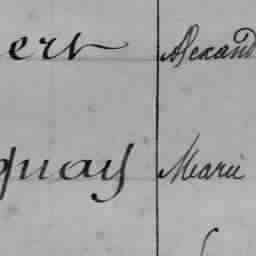 ert Alexand
quay Marie